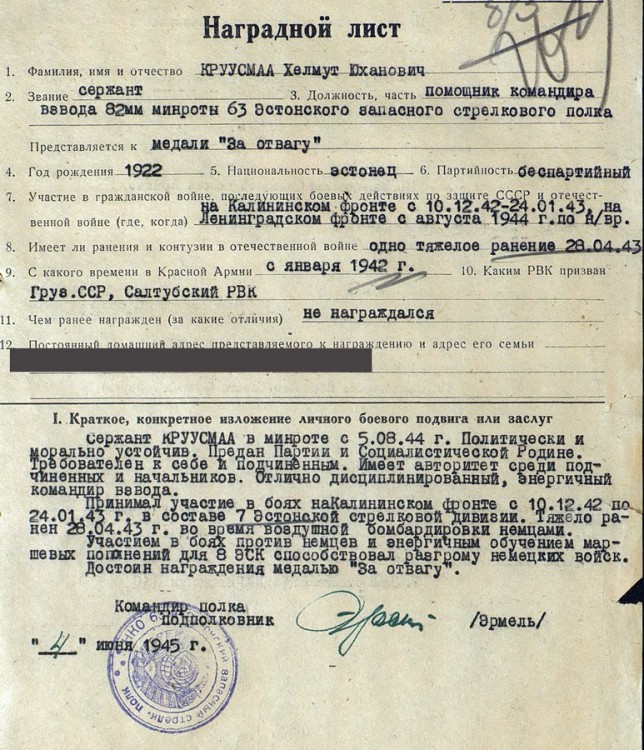 Наградной лист
1. Фамилия, имя и отчество КРУУСМАА Хелмут Юханович
2. Звание сержант 3. Должность, часть помощник командира
взвода 82мм минроты 63 Эстонского запасного стрелкового полка
Представляется к медали "За отвагу"
4. Год рождения 1922 5. Национальность эстонец 6. Партийность беспартийный
7. Участие в гражданской войне, последующих боевых действиях по защите СССР и отечест-
на Калининском фронте с 10.12.42-24.01.43, на
венной войне (где, когда) Ленинградском фронте с августа 1944 г.по н/вр.
8. Имеет ли ранения и контузии в отечественной войне одно тяжелое ранение 28.04.43
9. С какого времени в Красной Армии с января 1942 г. 10. Каким РВК призван
Груз.ССР, Салтубский РВК
11. Чем ранее награжден (за какие отличия) не награждался
12. Постоянный домашний адрес представляемого к награждению и адрес его семьи
I. Краткое, конкретное изложение личного боевого подвига или заслуг
Сержант КРУУСМАА в минроте с 5.08.44 г. Политически и
морально устойчив. Предан Партии и Социалистической Родине.
Требователен к себе и подчиненным. Имеет авторитет среди под-
чиненных и начальников. Отлично дисциплинированный, энергичный
командир взвода.
Принимал участие в боях наКалининском фронте с 10.12.42 по
24.01.43 г. в составе 7 Эстонской стрелковой дивизии. Тяжело ра-
нен 28.04.43 г. во время воздушной бомбардировки немцами.
Участием в боях против немцев и энергичным обучением мар-
шевых пополнений для 8 ЭСК способствовал разгрому немецких войск.
Достоин награждения медалью "За отвагу".
Командир полка
подполковник /Эрмель/
"4" июня 1945 г.
эстонский запасный стрелк. полк